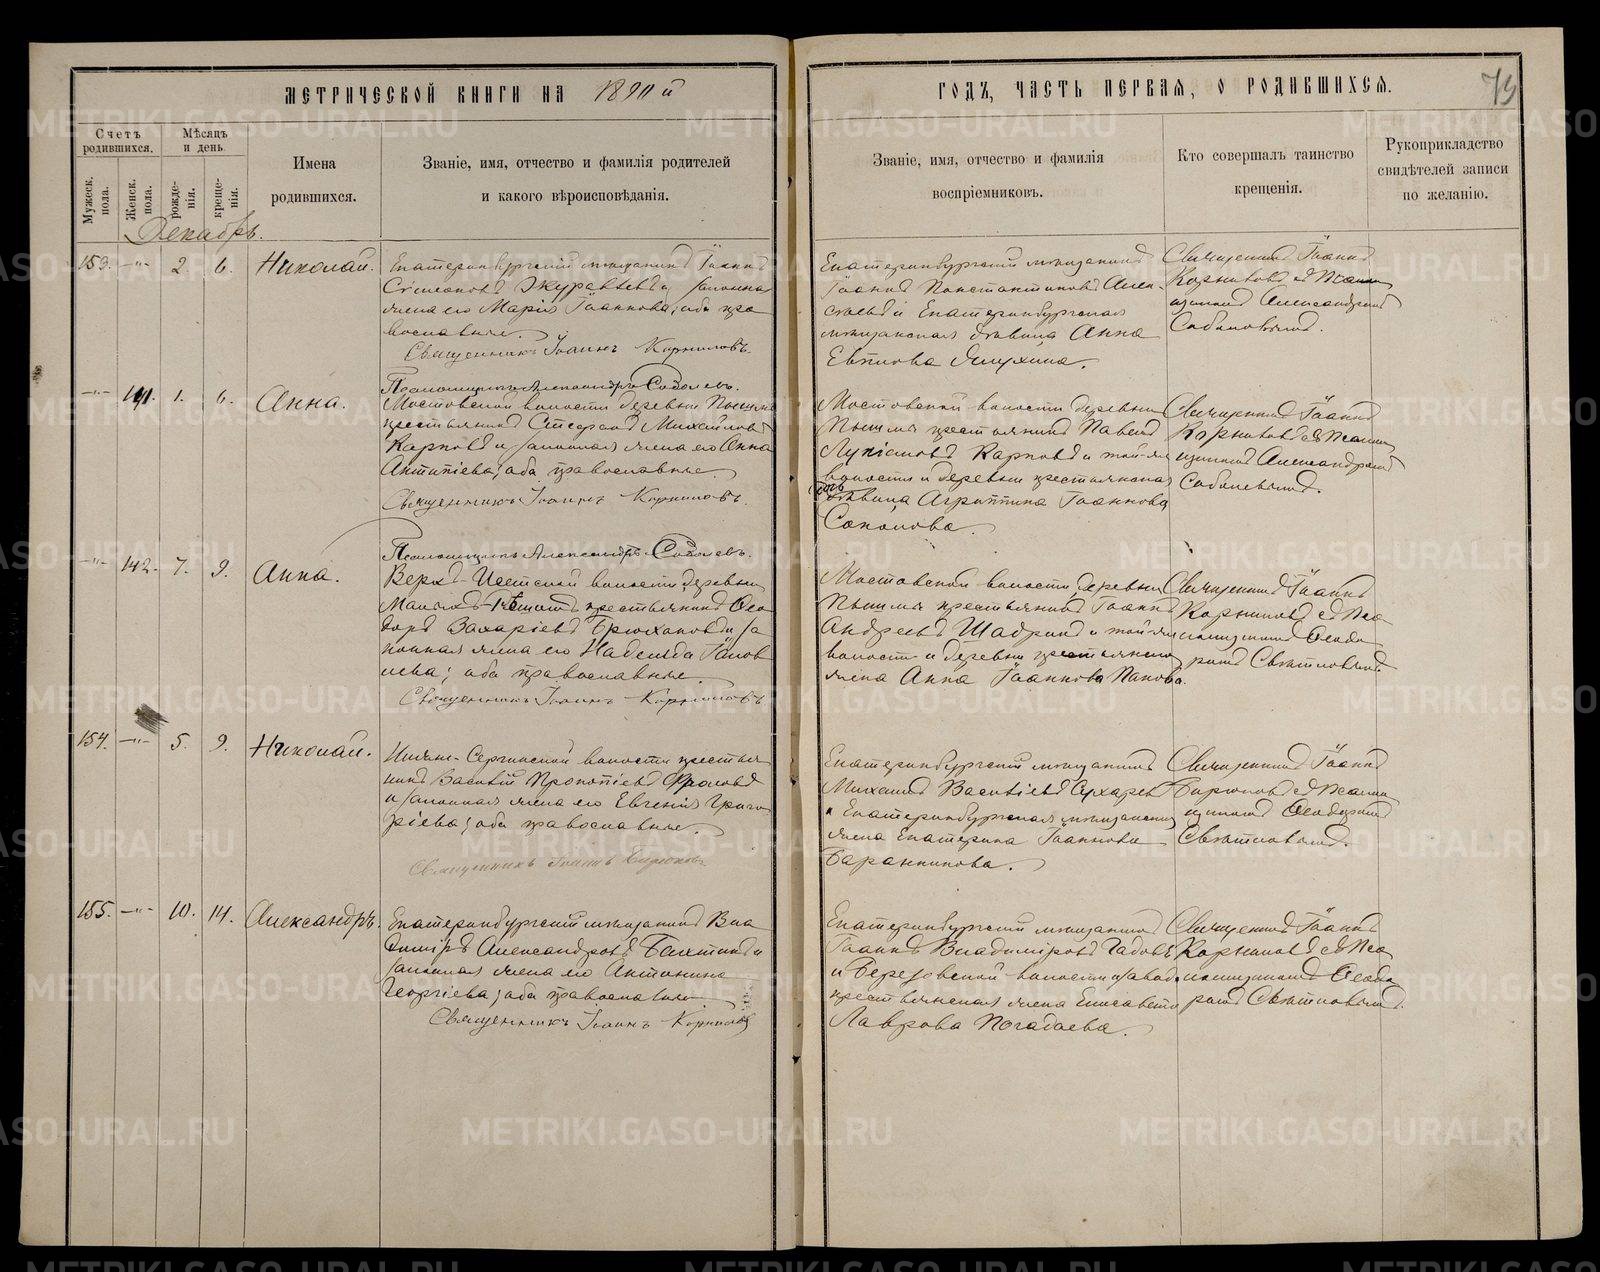 МЕТРИЧЕСКОЙ КНИГИ НА 1890 й
ГОДЪ, ЧАСТЬ ПЕРВАЯ, О РОДИВШИХСЯ.
Счетъ родившихся.
Мужеск. пола.
Женск. пола.
Мѣсяцъ и день
рожде- нія.
креще- нія.
Имена
родившихся.
Званіе, имя, отчество и фамилія родителей
и какого вѣроисповѣданія.
Званіе, имя, отчество и фамилія
воспріемниковъ.
Кто совершалъ таинство
крещенія.
Рукоприкладство
свидѣтелей записи
по желанію.
Декабрь.
153. —"— 2. 6. Николай.
Екатеринбургскій мѣщанинъ Іоаннъ
Симеоновъ Журавлевъ и законная
жена его Марія Іоаннова; оба пра
вославные.
Священникъ Іоаннъ Корниловъ.
Псаломщикъ Александръ Соболевъ.
Екатеринбургскій мѣщанинъ
Іоаннъ Константиновъ
и Екатеринбургская
мѣщанская дѣвица Анна
Евтиова
Священникъ Іоаннъ
Корниловъ съ Псалом
щикомъ Александромъ
Соболевымъ.
—"— 141. 1. 6. Анна.
Мостовской волости деревни Пышмы
крестьянинъ Михайловъ
Карповъ и законная жена его Анна
Антипіева; оба православные
Священникъ Іоаннъ Корниловъ.
Псаломщикъ Александръ Соболевъ.
Мостовской волости деревни
Пышмы крестьянинъ Павелъ
Лукіановъ Карповъ и той-же
волости и деревни крестьянская
дѣвица Агриппина Іоаннова
Соколова.
Священникъ Іоаннъ
Корниловъ съ Псалом
щикомъ Александромъ
Соболевымъ.
—"— 142. 7. 9. Анна.
Верхъ-Исетской волости, деревни
крестьянинъ Ѳео
доръ Захаріевъ Брюхановъ и за
конная жена его Надежда Іаков
лева; оба православные.
Священникъ Іоаннъ Корниловъ
Мостовской волости, деревни
Пышмы крестьянинъ Іоаннъ
Андреевъ Шадринъ и той-же
волости и деревни крестьянская
жена Анна Іоаннова Попова.
Священникъ Іоаннъ
Корниловъ съ Пса
ломщикомъ Ѳеодо
ромъ Свѣтловымъ.
154. —"— 5. 9. Николай.
Нижне-Сергинской волости крестья
нинъ Василій Прокопіевъ Фроловъ
и законная жена его Евгенія Григо
ріева; оба православные.
Священникъ Іоаннъ Бирюковъ
Екатеринбургскій мѣщанинъ
Михаилъ Василіевъ Сухаревъ
и Екатеринбургская мѣщанская
жена Екатерина Іоаннова
Баранникова.
Священникъ Іоаннъ
Бирюковъ съ Псалом
щикомъ Ѳеодоромъ
Свѣтловымъ.
155. —"— 10. 14. Александръ.
Екатеринбургскій мѣщанинъ Вла
диміръ Александровъ Бахтинъ и
законная жена его Антонина
Георгіева; оба православные.
Священникъ Іоаннъ Корниловъ
Екатеринбургскій мѣщанинъ
Іоаннъ Владиміровъ
и Березовской волости и завода
крестьянская жена Елисавета
Лаврова Погадаева.
Священникъ Іоаннъ
Корниловъ съ Пса
ломщикомъ Ѳеодо
ромъ Свѣтловымъ.
METRIKI.GASO-URAL.RU